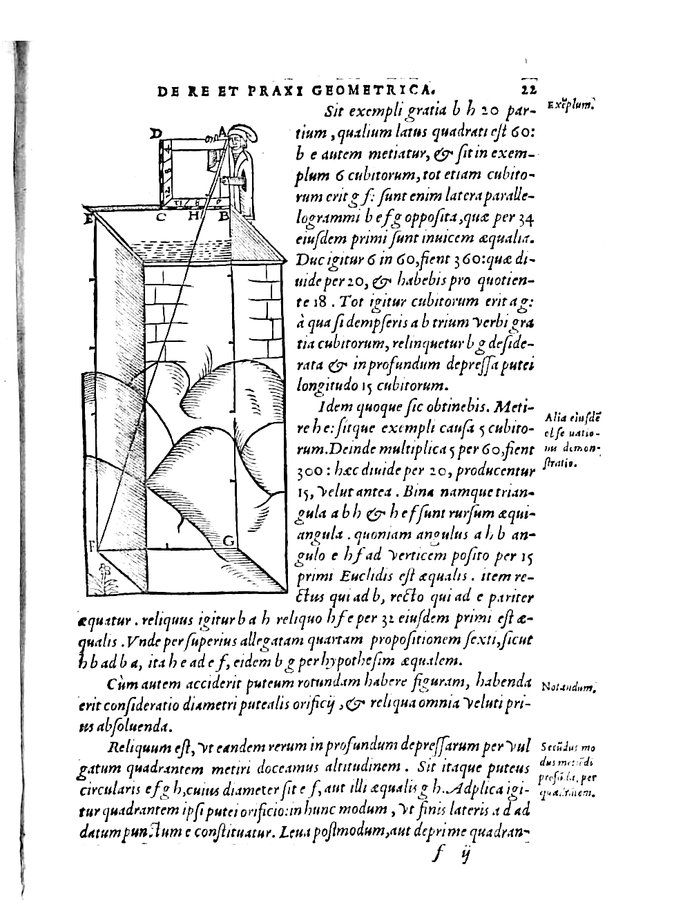 DE RE ET PRAXI GEOMETRICA. 22
Sit exempli gratia b h 20 par-
tium, qualium latus quadrati est 60:
b e autem metiatur, & sit in exem-
plum 6 cubitorum, tot etiam cubito-
rum erit g f: sunt enim latera paralle-
logrammi b e f g opposita, quæ per 34
eiusdem primi sunt inuicem æqualia.
Duc igitur 6 in 60, fient 360: quæ di-
uide per 20, & habebis pro quotien-
te 18. Tot igitur cubitorum erit a g:
à qua si dempseris a b trium verbi gra
tia cubitorum, relinquetur b g deside-
rata & in profundum depressa putei
longitudo 15 cubitorum.
Exẽplum.
D A
E C H B
F G
Idem quoque sic obtinebis. Meti-
re h e: sitque exempli causa 5 cubito-
rum. Deinde multiplica 5 per 60, fient
300: hæc diuide per 20, producentur
15, velut antea. Bina namque trian-
gula a b h & h e f sunt rursum æqui-
angula. quoniam angulus a h b an-
gulo e h f ad verticem posito per 15
primi Euclidis est æqualis. item re-
ctus qui ad b, recto qui ad e pariter
æquatur. reliquus igitur b a h reliquo h f e per 32 eiusdem primi est æ-
qualis. Vnde per superius allegatam quartam propositionem sexti, sicut
h b ad b a, ita h e ad e f, eidem b g per hypothesim æqualem.
Alia eiusdẽ
demon-
stratio.
Cùm autem acciderit puteum rotundam habere figuram, habenda
erit consideratio diametri putealis orificij, & reliqua omnia veluti pri-
us absoluenda.
Notandum.
Reliquum est, vt eandem rerum in profundum depressarum per vul
gatum quadrantem metiri doceamus altitudinem. Sit itaque puteus
circularis e f g h, cuius diameter sit e f, aut illi æqualis g h. Adplica igi-
tur quadrantem ipsi putei orificio: in hunc modum, vt finis lateris a d ad
datum punctum e constituatur. Leua postmodum, aut deprime quadran-
Secũdus mo
dus
per
f ij